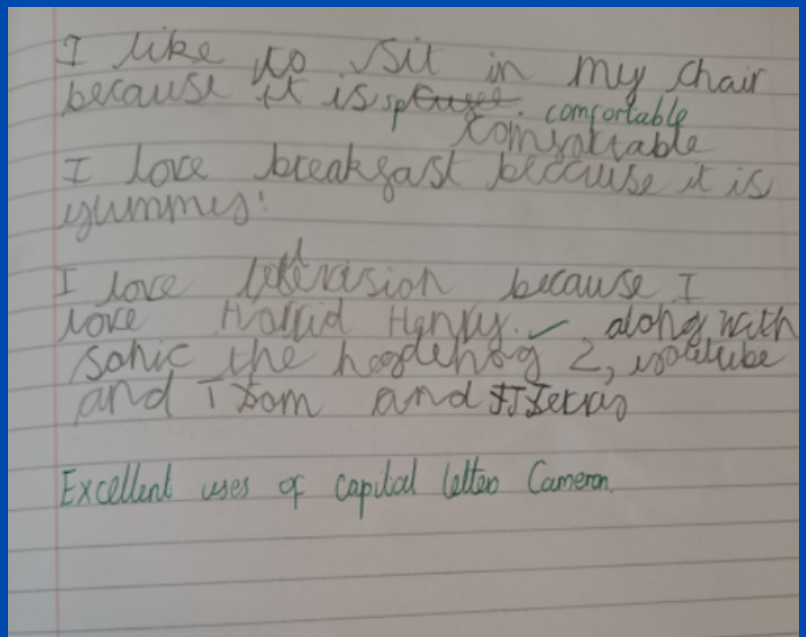 I like to sit in my chair
because it is comfortable
comfortable
I love breakfast because it is
yummy!
I love television because I
love Horrid Henry. along with
sonic the hegdehog 2, youtube
and Tom and Jerry
Excellent uses of capital letters Cameron.